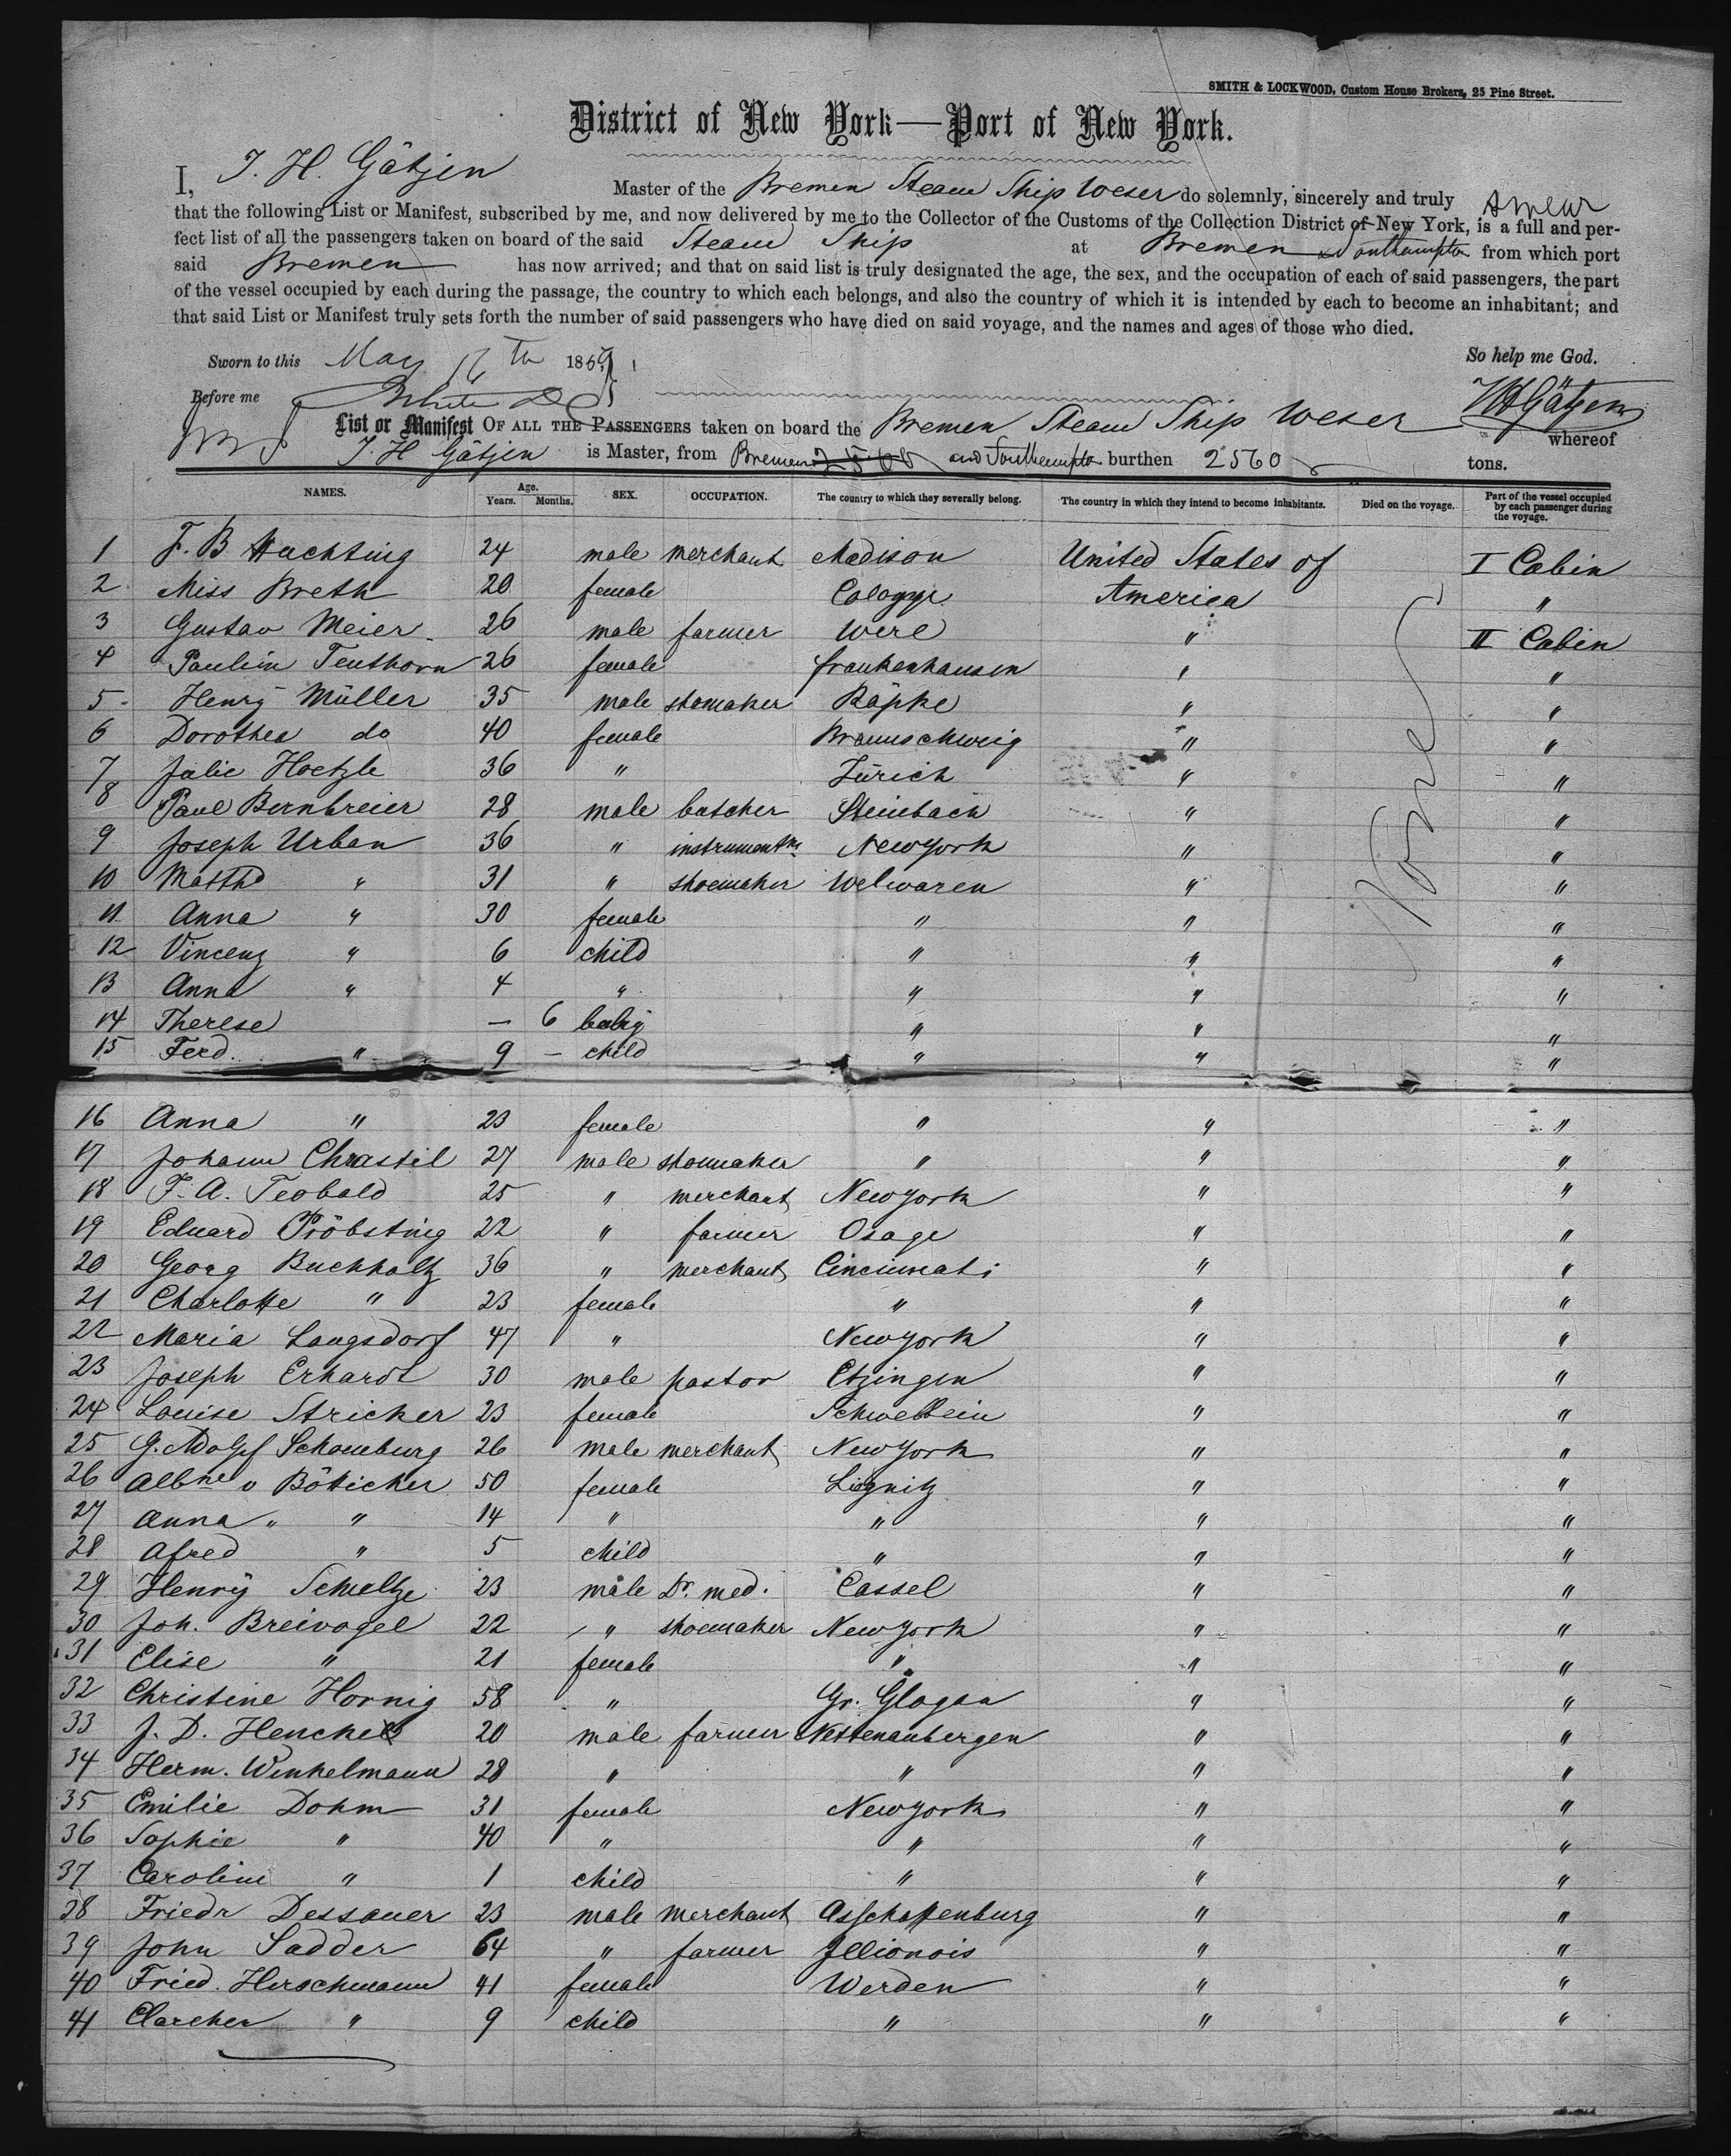 SMITH & LOCKWOOD, Custom House Brokers, 25 Pine Street.
District of New York—Port of New York.
I, J. H. Gätjen Master of the Bremen Steam Ship Weser do solemnly, sincerely and truly swear
that the following List or Manifest, subscribed by me, and now delivered by me to the Collector of the Customs of the Collection District of New York, is a full and per-
fect list of all the passengers taken on board of the said Steam Ship at Bremen & Southampton from which port
said Bremen has now arrived; and that on said list is truly designated the age, the sex, and the occupation of each of said passengers, the part
of the vessel occupied by each during the passage, the country to which each belongs, and also the country of which it is intended by each to become an inhabitant; and
that said List or Manifest truly sets forth the number of said passengers who have died on said voyage, and the names and ages of those who died.
Sworn to this May th 1869 So help me God.
Before me HGätjen
List or Manifest OF ALL THE PASSENGERS taken on board the Bremen Steam Ship Weser whereof
J. H Gätjen is Master, from Bremen and Southampton burthen 2560 tons.
NAMES. Age. Years. Months. SEX. OCCUPATION. The country to which they severally belong. The country in which they intend to become inhabitants. Died on the voyage. Part of the vessel occupied by each passenger during the voyage.
1 F. B Huchting 24 male merchant Madison United States of I Cabin
2 Miss Breth 20 female Cologne America "
3 Gustav Meier 26 male farmer Werl " II Cabin
4 Paulin Teuthorn 26 female frankenhausen " "
5 Henry Müller 35 male shomaker Räpke " "
6 Dorothea do 40 female Braunschweig " "
7 Julie Hoetzle 36 " Zürich " "
8 Paul Bernbreier 28 male butcher Steinbach " "
9 Joseph Urban 36 " instrumentm. Newyork " "
10 Matth " 31 " shoemaker Welwaren " "
11 Anna " 30 female " " "
12 Vincenz " 6 child " " "
13 Anna " 4 " " " "
14 Therese — 6 baby " " "
15 Ferd. " 9 – child " " "
None
16 Anna " 23 female " " "
17 Johann Chrastil 27 male shomaker " " "
18 F. A. Teobald 25 " merchant Newyork " "
19 Eduard Pröbsting 22 " farmer Osage " "
20 Georg Buckholtz 36 " merchant Cincinnati " "
21 Charlotte " 23 female " " "
22 Maria Langsdorf 47 " Newyork " "
23 Joseph Erhardt 30 male pastor Etzingen " "
24 Louise Stricker 23 female Schwelbein " "
25 G. Adolpf Schomburg 26 male merchant Newyork " "
26 Albne v Bötticher 50 female Liegnitz " "
27 Anna " " 14 " " " "
28 Afred " 5 child " " "
29 Henry Schultze 23 male Dr. med. Cassel " "
30 Joh. Breivogel 22 " shoemaker Newyork " "
31 Elise " 21 female " " "
32 Christine Hornig 58 " Gr. Glogau " "
33 J. D. Henckel 20 male farmer Nettenaubergen " "
34 Herm. Winkelmann 28 " " " "
35 Emilie Dohm 31 female Newyork " "
36 Sophie " 40 " " " "
37 Carolin " 1 child " " "
38 Friedr Dessauer 23 male merchant Asschaffenburg " "
39 John Sadder 64 " farmer Jllionois " "
40 Fried. Herschmann 41 female Werden " "
41 Clarchen " 9 child " " "